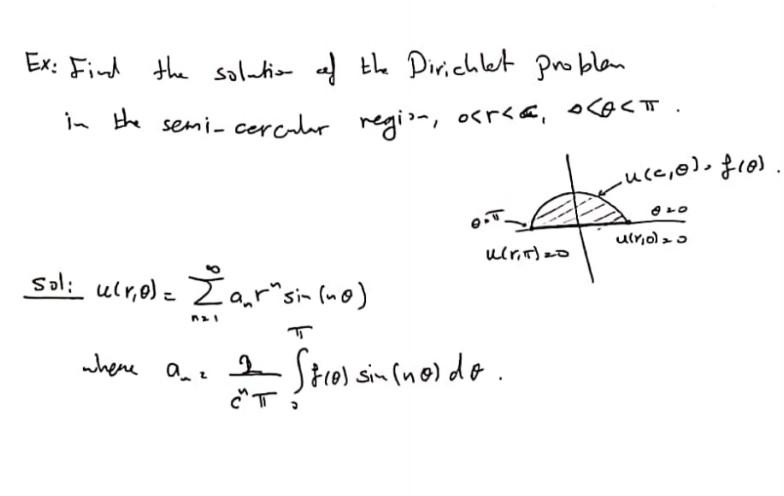 Ex: Find the solution of the Dirichlet problem
in the semi-cercular region, 0<r<c, 0<θ<π.
u(c,θ)=f(θ).
θ=π
θ=0
u(r,π)=0
u(r,0)=0
Sol: u(r,θ) = ∞∑n=1 aₙrⁿ sin(nθ)
where aₙ = 2/(cⁿπ) ∫₀^π f(θ) sin(nθ) dθ.